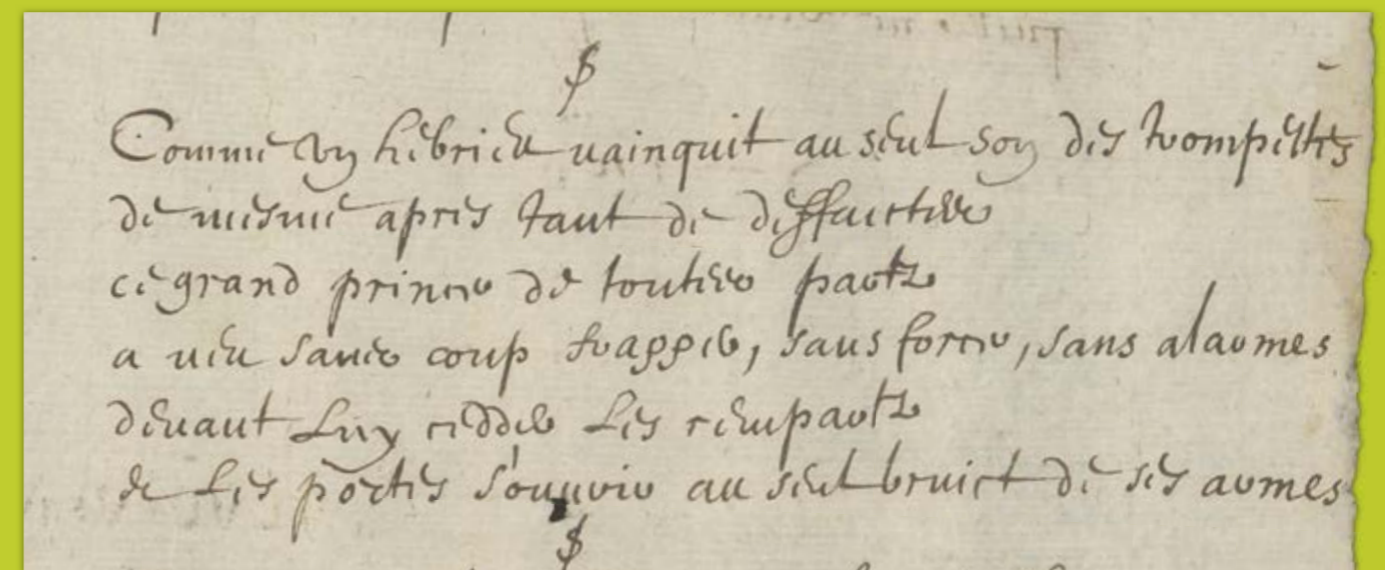 $
Comme vn hebrieu uainquit au seul son des trompettes
de mesme apres tant de deffaictes
ce grand prince de toutes partz
a ueu sans coup frapper, sans force, sans alarmes
deuant luy cedder les rempartz
et les portes s'ouurir au seul bruict de ses armes
$